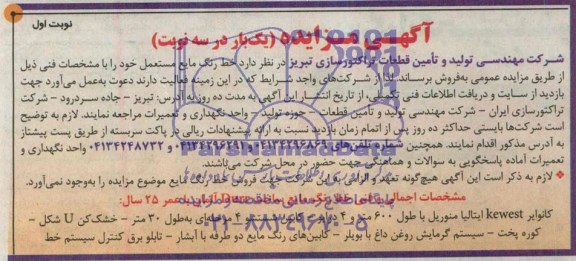 نوبت اول
آگهی مزایده (یک‌بار در سه نوبت)
شرکت مهندسی تولید و تأمین قطعات تراکتورسازی تبریز در نظر دارد خط رنگ مایع مستعمل خود را با مشخصات فنی ذیل
از طریق مزایده عمومی به‌فروش برساند. لذا از شرکت‌های واجد شرایط که در این زمینه فعالیت دارند دعوت به‌عمل می‌آورد جهت
بازدید از سایت و دریافت اطلاعات فنی تکمیلی، از تاریخ انتشار این آگهی به مدت ده روز به آدرس: تبریز - جاده سردرود - شرکت
تراکتورسازی ایران - شرکت مهندسی تولید و تأمین قطعات - حوزه تولید - واحد نگهداری و تعمیرات مراجعه نمایند. لازم به توضیح
است شرکت‌ها بایستی حداکثر ده روز پس از اتمام زمان بازدید نسبت به ارائه پیشنهادات ریالی در پاکت سربسته از طریق پست پیشتاز
به آدرس مذکور اقدام نمایند. همچنین شماره تلفن‌های ۰۴۱۳۴۲۹۶۸۶۹ و ۰۴۱۳۴۲۹۶۲۹۱ و ۰۴۱۳۴۲۴۸۷۳۲ واحد نگهداری و
تعمیرات آماده پاسخگویی به سوالات و هماهنگی جهت حضور در محل شرکت می‌باشند.
لازم به ذکر است این آگهی هیچ‌گونه تعهد و الزامی به این شرکت جهت فروش خط رنگ مایع موضوع مزایده را به‌وجود نمی‌آورد.
مشخصات اجمالی فنی خط رنگ مایع ساخت آلمان، عمر ۲۵ سال:
کانوایر kewest ایتالیا منوریل با طول ۶۰۰ متر و ۴ درایو - کابین شستشو ۴ مرحله‌ای به‌طول ۳۰ متر - خشک‌کن U شکل -
کوره پخت - سیستم گرمایش روغن داغ با بویلر - کابین‌های رنگ مایع دو طرفه با آبشار - تابلو برق کنترل سیستم خط
ParsNamadData
۰۲۱-۸۸۳۴۹۶۷۰-۵